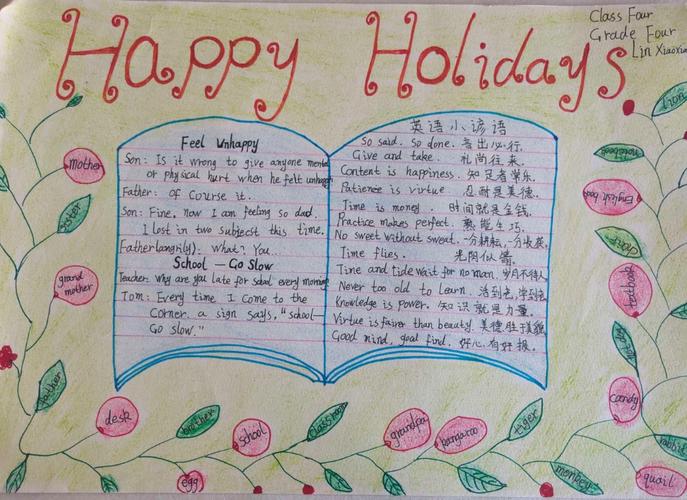 Happy Holidays
Class Four
Grade Four
Lin Xiaoxin
Feel Unhappy
Son: Is it wrong to give anyone mental
or physical hurt when he felt unhappy
Father: Of course it.
Son: Fine, now I am feeling so dad,
I lost in two subject this time.
Father(angrily): what? You...
School — Go Slow
Teacher: why are you late for school every morning
Tom: Every time I come to the
Corner. a sign says, "school—
Go slow."
英语小谚语
So said. So done. 言出必行.
Give and take. 礼尚往来.
Content is happiness. 知足者常乐.
Patience is virtue. 忍耐是美德.
Time is money. 时间就是金钱.
Practice makes perfect. 熟能生巧.
No sweet without sweat. 一分耕耘,一分收获.
Time flies. 光阴似箭.
Time and tide wait for no man. 岁月不待人
Never too old to learn. 活到老,学到老
Knowledge is power. 知识就是力量.
Virtue is fairer than beauty. 美德胜于美貌
Good mind, good find. 好心有好报.
mother
sister
grand
mother
father
desk
brother
egg
school
classroom
grandpa
kangaroo
tiger
monkey
quail
rabbit
candy
hot dog
notebook
English book
lion